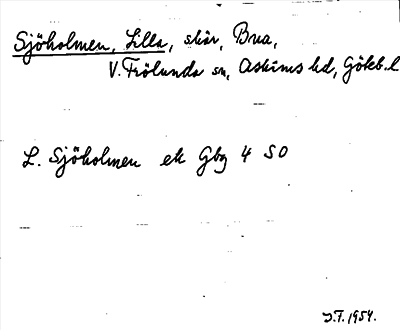 Sjöholmen, Lilla, skär, Brua,
V. Frölunda sn, Askims hd, Göteb. l
L. Sjöholmen ek Gbg 4 SO
J.F. 1954.